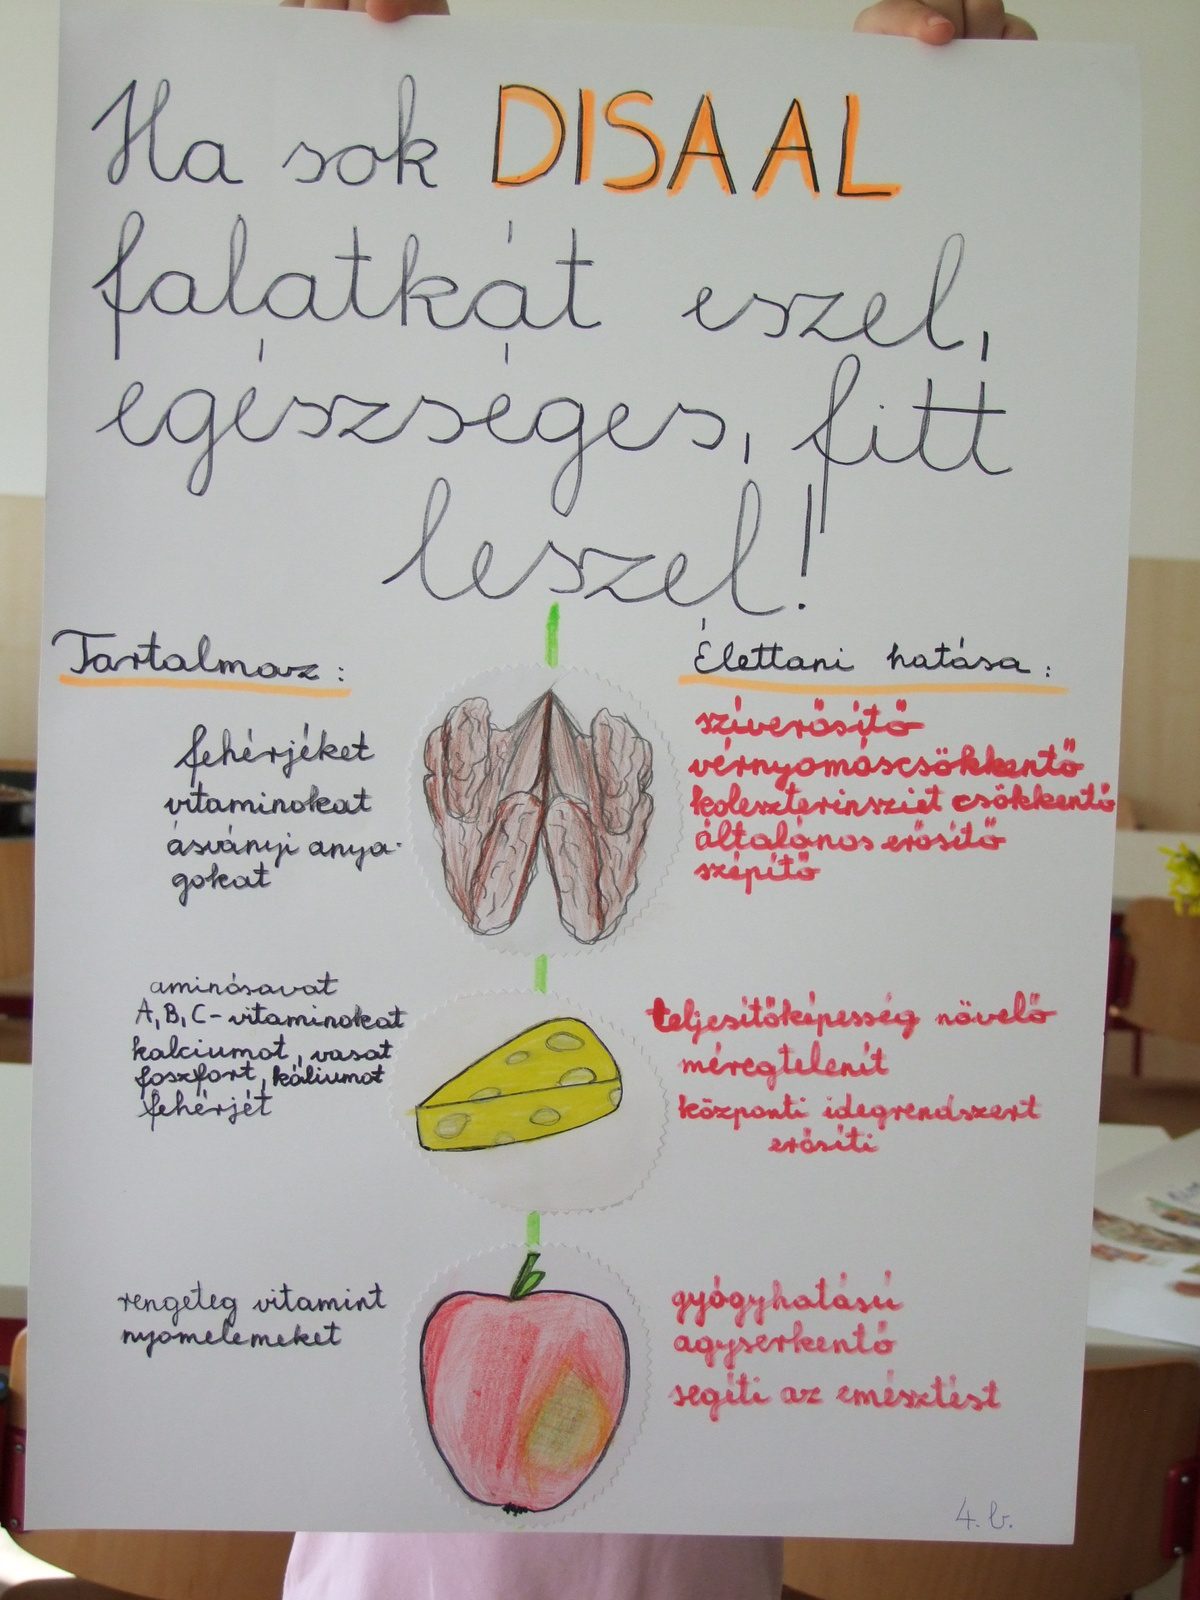 Ha sok DISAAL
falatkát eszel,
egészséges, fitt
leszel!
Tartalmaz:
fehérjéket
vitaminokat
ásványi anya-
gokat
aminósavat
A,B,C-vitaminokat
kalciumot, vasat
foszfort, káliumot
fehérjét
rengeteg vitamint
nyomelemeket
Élettani hatása:
szíverősítő
vérnyomáscsökkentő
koleszterinsziet csökkentő
általános erősítő
szépítő
teljesítőképesség növelő
méregtelenít
központi idegrendszert
erősíti
gyógyhatású
agyserkentő
segíti az emésztést
4. b.